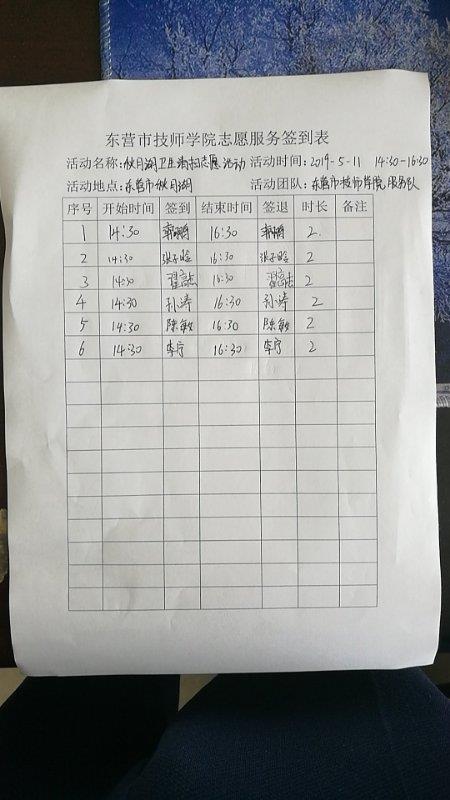 东营市技师学院志愿服务签到表
活动名称：秋月湖卫生清扫志愿活动 活动时间：2019-5-11 14:30-16:30
活动地点：东营市秋月湖 活动团队：东营市技师学院服务队
序号 开始时间 签到 结束时间 签退 时长 备注
1 14:30 16:30 2
2 14:30 张子晗 16:30 张子晗 2
3 14:30 16:30 2
4 14:30 孙涛 16:30 孙涛 2
5 14:30 陈敏 16:30 陈敏 2
6 14:30 李宁 16:30 李宁 2